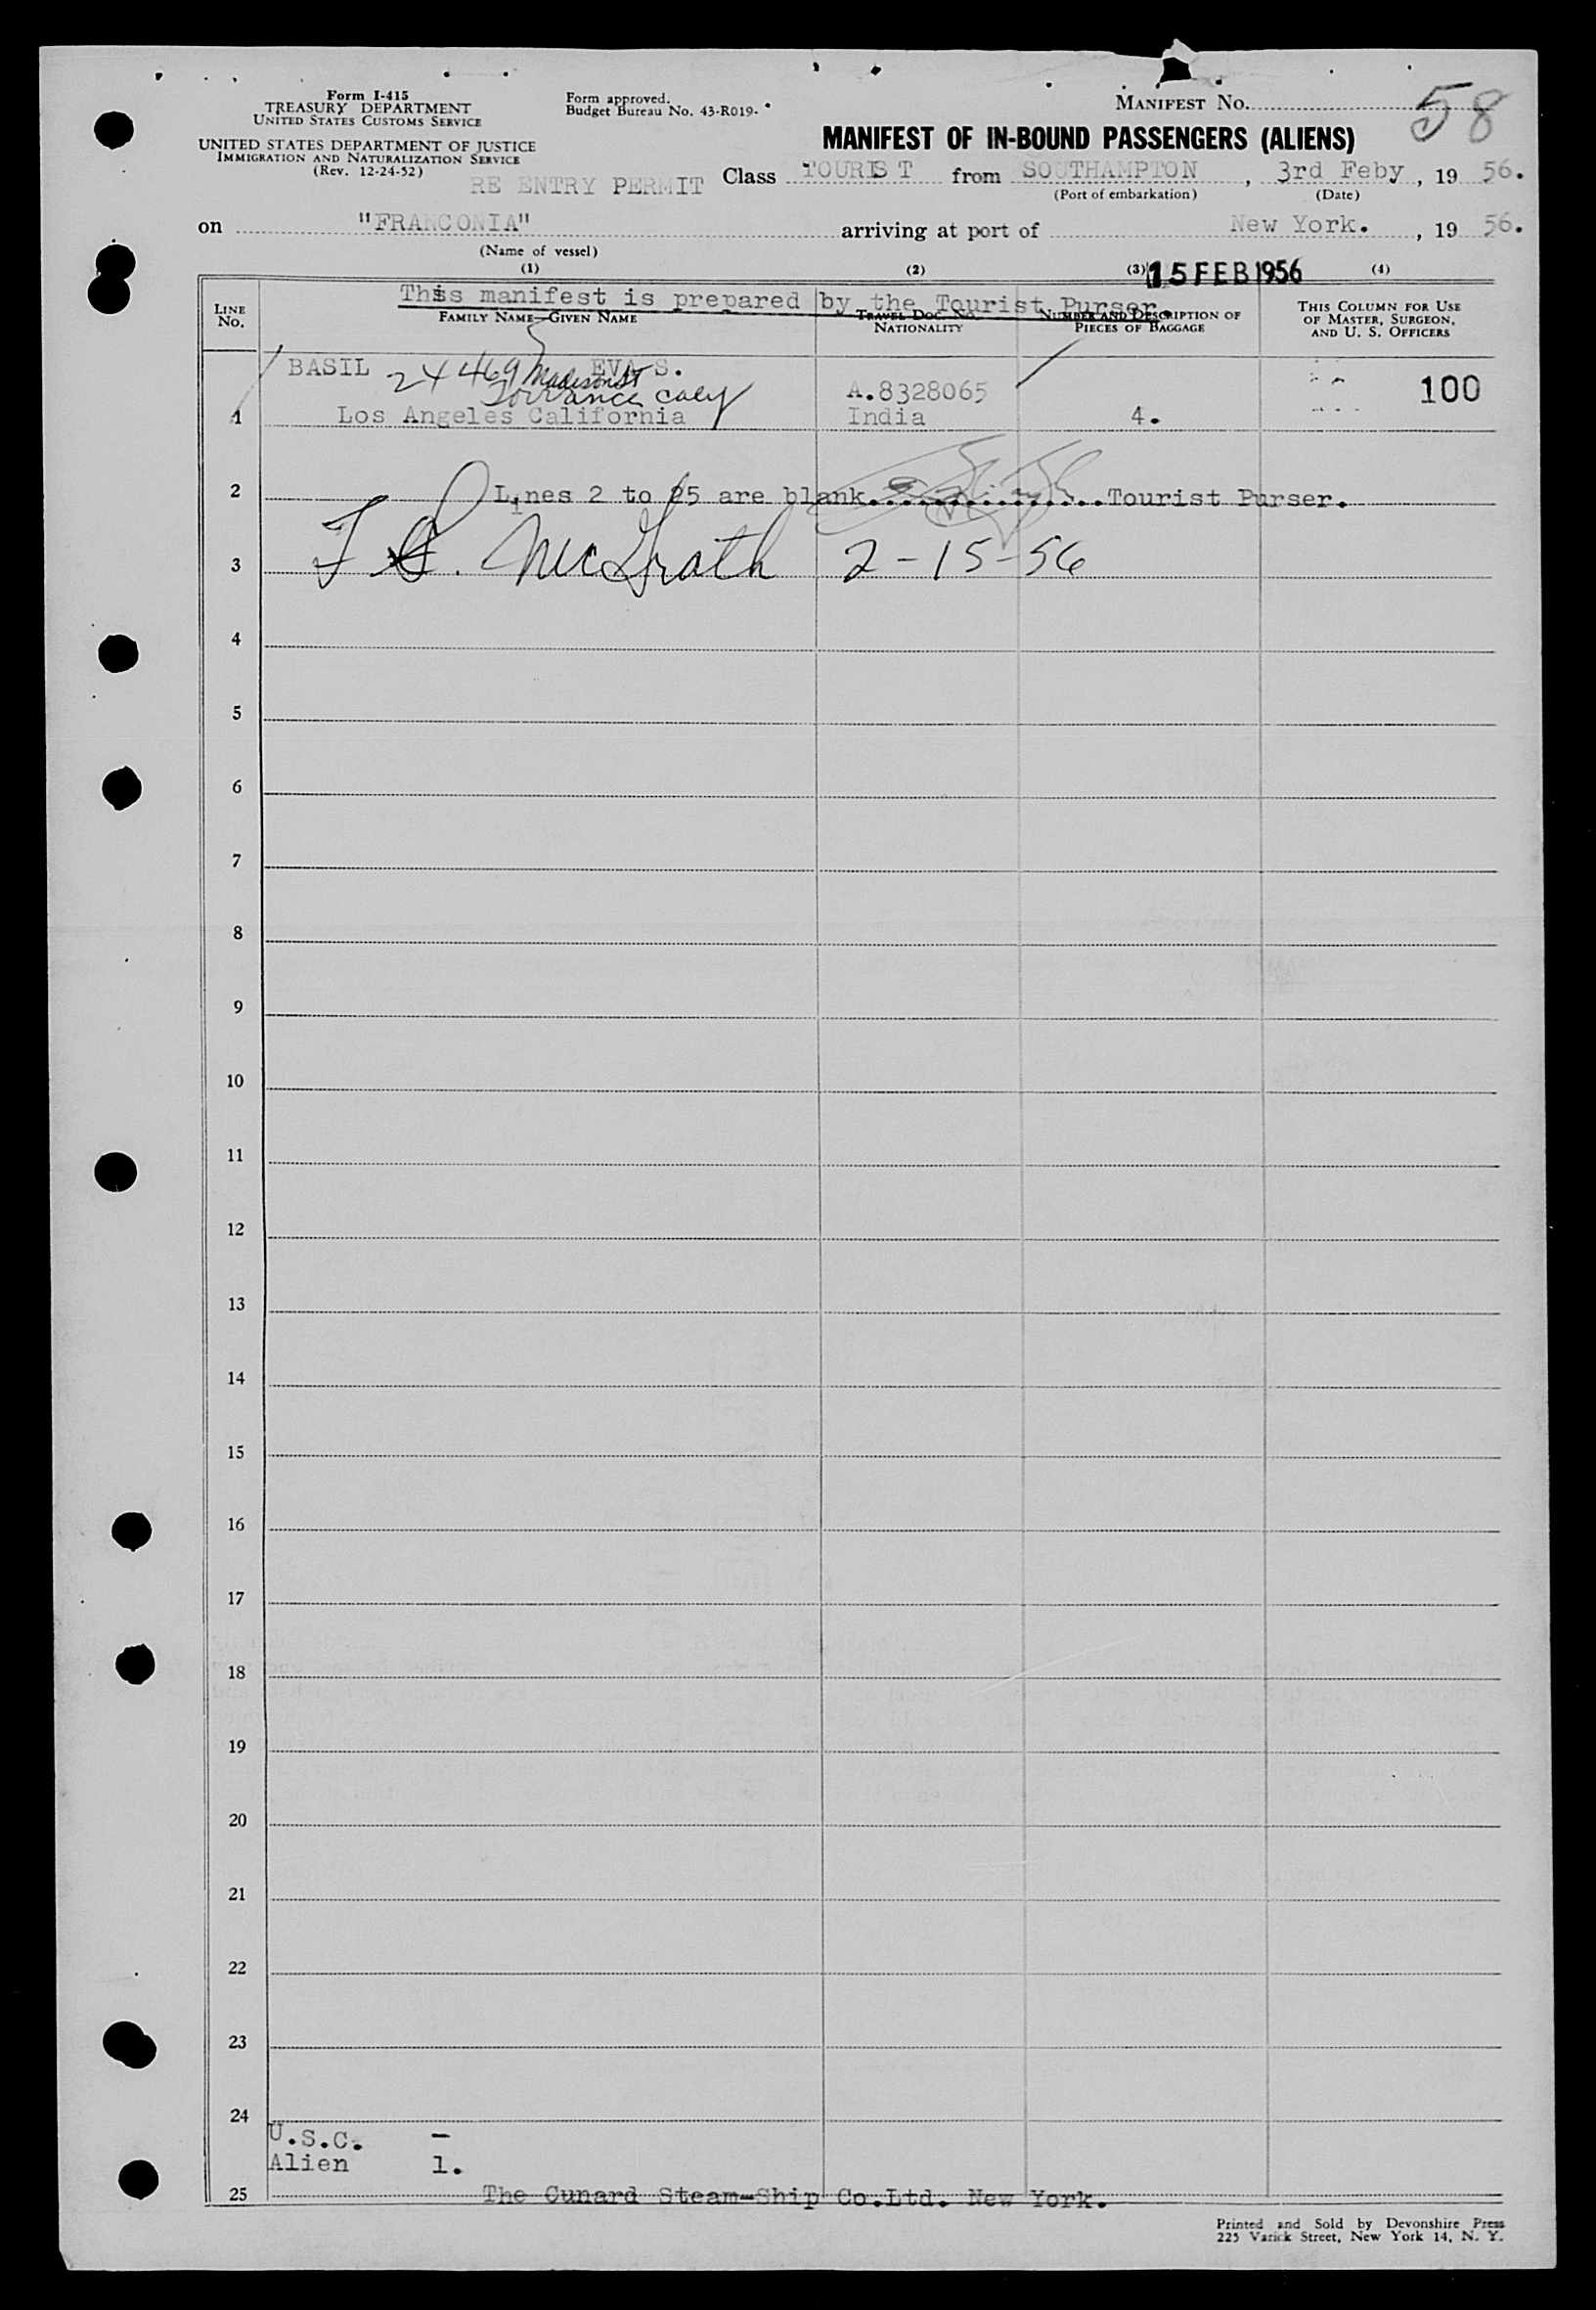 Form I-415
TREASURY DEPARTMENT
UNITED STATES CUSTOMS SERVICE
UNITED STATES DEPARTMENT OF JUSTICE
IMMIGRATION AND NATURALIZATION SERVICE
(Rev. 12-24-52)
Form approved.
Budget Bureau No. 43-R019-
MANIFEST No. 58
MANIFEST OF IN-BOUND PASSENGERS (ALIENS)
RE ENTRY PERMIT Class TOURIST from SOUTHAMPTON, 3rd Feby, 19 56.
(Port of embarkation) (Date)
on "FRANCONIA" arriving at port of New York., 19 56.
(Name of vessel)
(1) (2) (3) 15 FEB 1956 (4)
This manifest is prepared by the Tourist Purser
LINE No. FAMILY NAME—GIVEN NAME TRAVEL DOC. NO. NATIONALITY NUMBER AND DESCRIPTION OF PIECES OF BAGGAGE THIS COLUMN FOR USE OF MASTER, SURGEON, AND U. S. OFFICERS
BASIL EVA S.
24469 Madison St
Torrance Caly
A.8328065 100
1 Los Angeles California India 4.
2 Lines 2 to 25 are blank. Tourist Purser.
3 McGrath 2-15-56
4
5
6
7
8
9
10
11
12
13
14
15
16
17
18
19
20
21
22
23
24
U.S.C. –
Alien 1.
25 The Cunard Steam-Ship Co.Ltd. New York.
Printed and Sold by Devonshire Press
225 Varick Street, New York 14, N. Y.